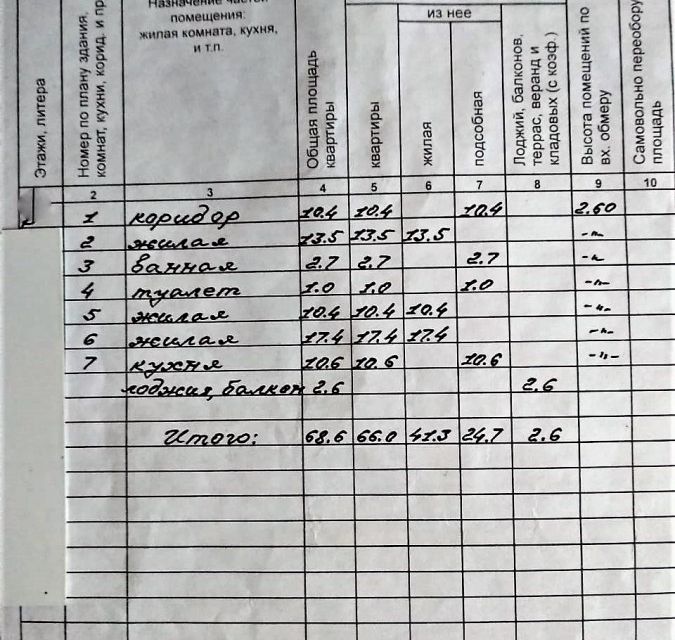 Этажи, литера
Номер по плану здания,
комнат, кухни, корид. и пр
Назначение частей
помещения:
жилая комната, кухня,
и т.п.
Общая площадь
квартиры
квартиры
из нее
жилая
подсобная
Лоджий, балконов,
террас, веранд и
кладовых (с коэф.)
Высота помещений по
вх. обмеру
Самовольно переобору
площадь
2 3 4 5 6 7 8 9 10
1 коридор 10.4 10.4 10.4 2.60
2 жилая 13.5 13.5 13.5 -"-
3 ванная 2.7 2.7 2.7 -"-
4 туалет 1.0 1.0 1.0 -"-
5 жилая 10.4 10.4 10.4 -"-
6 жилая 17.4 17.4 17.4 -"-
7 кухня 10.6 10.6 10.6 -"-
лоджия, балкон 2.6 2.6
Итого: 68.6 66.0 41.3 24.7 2.6